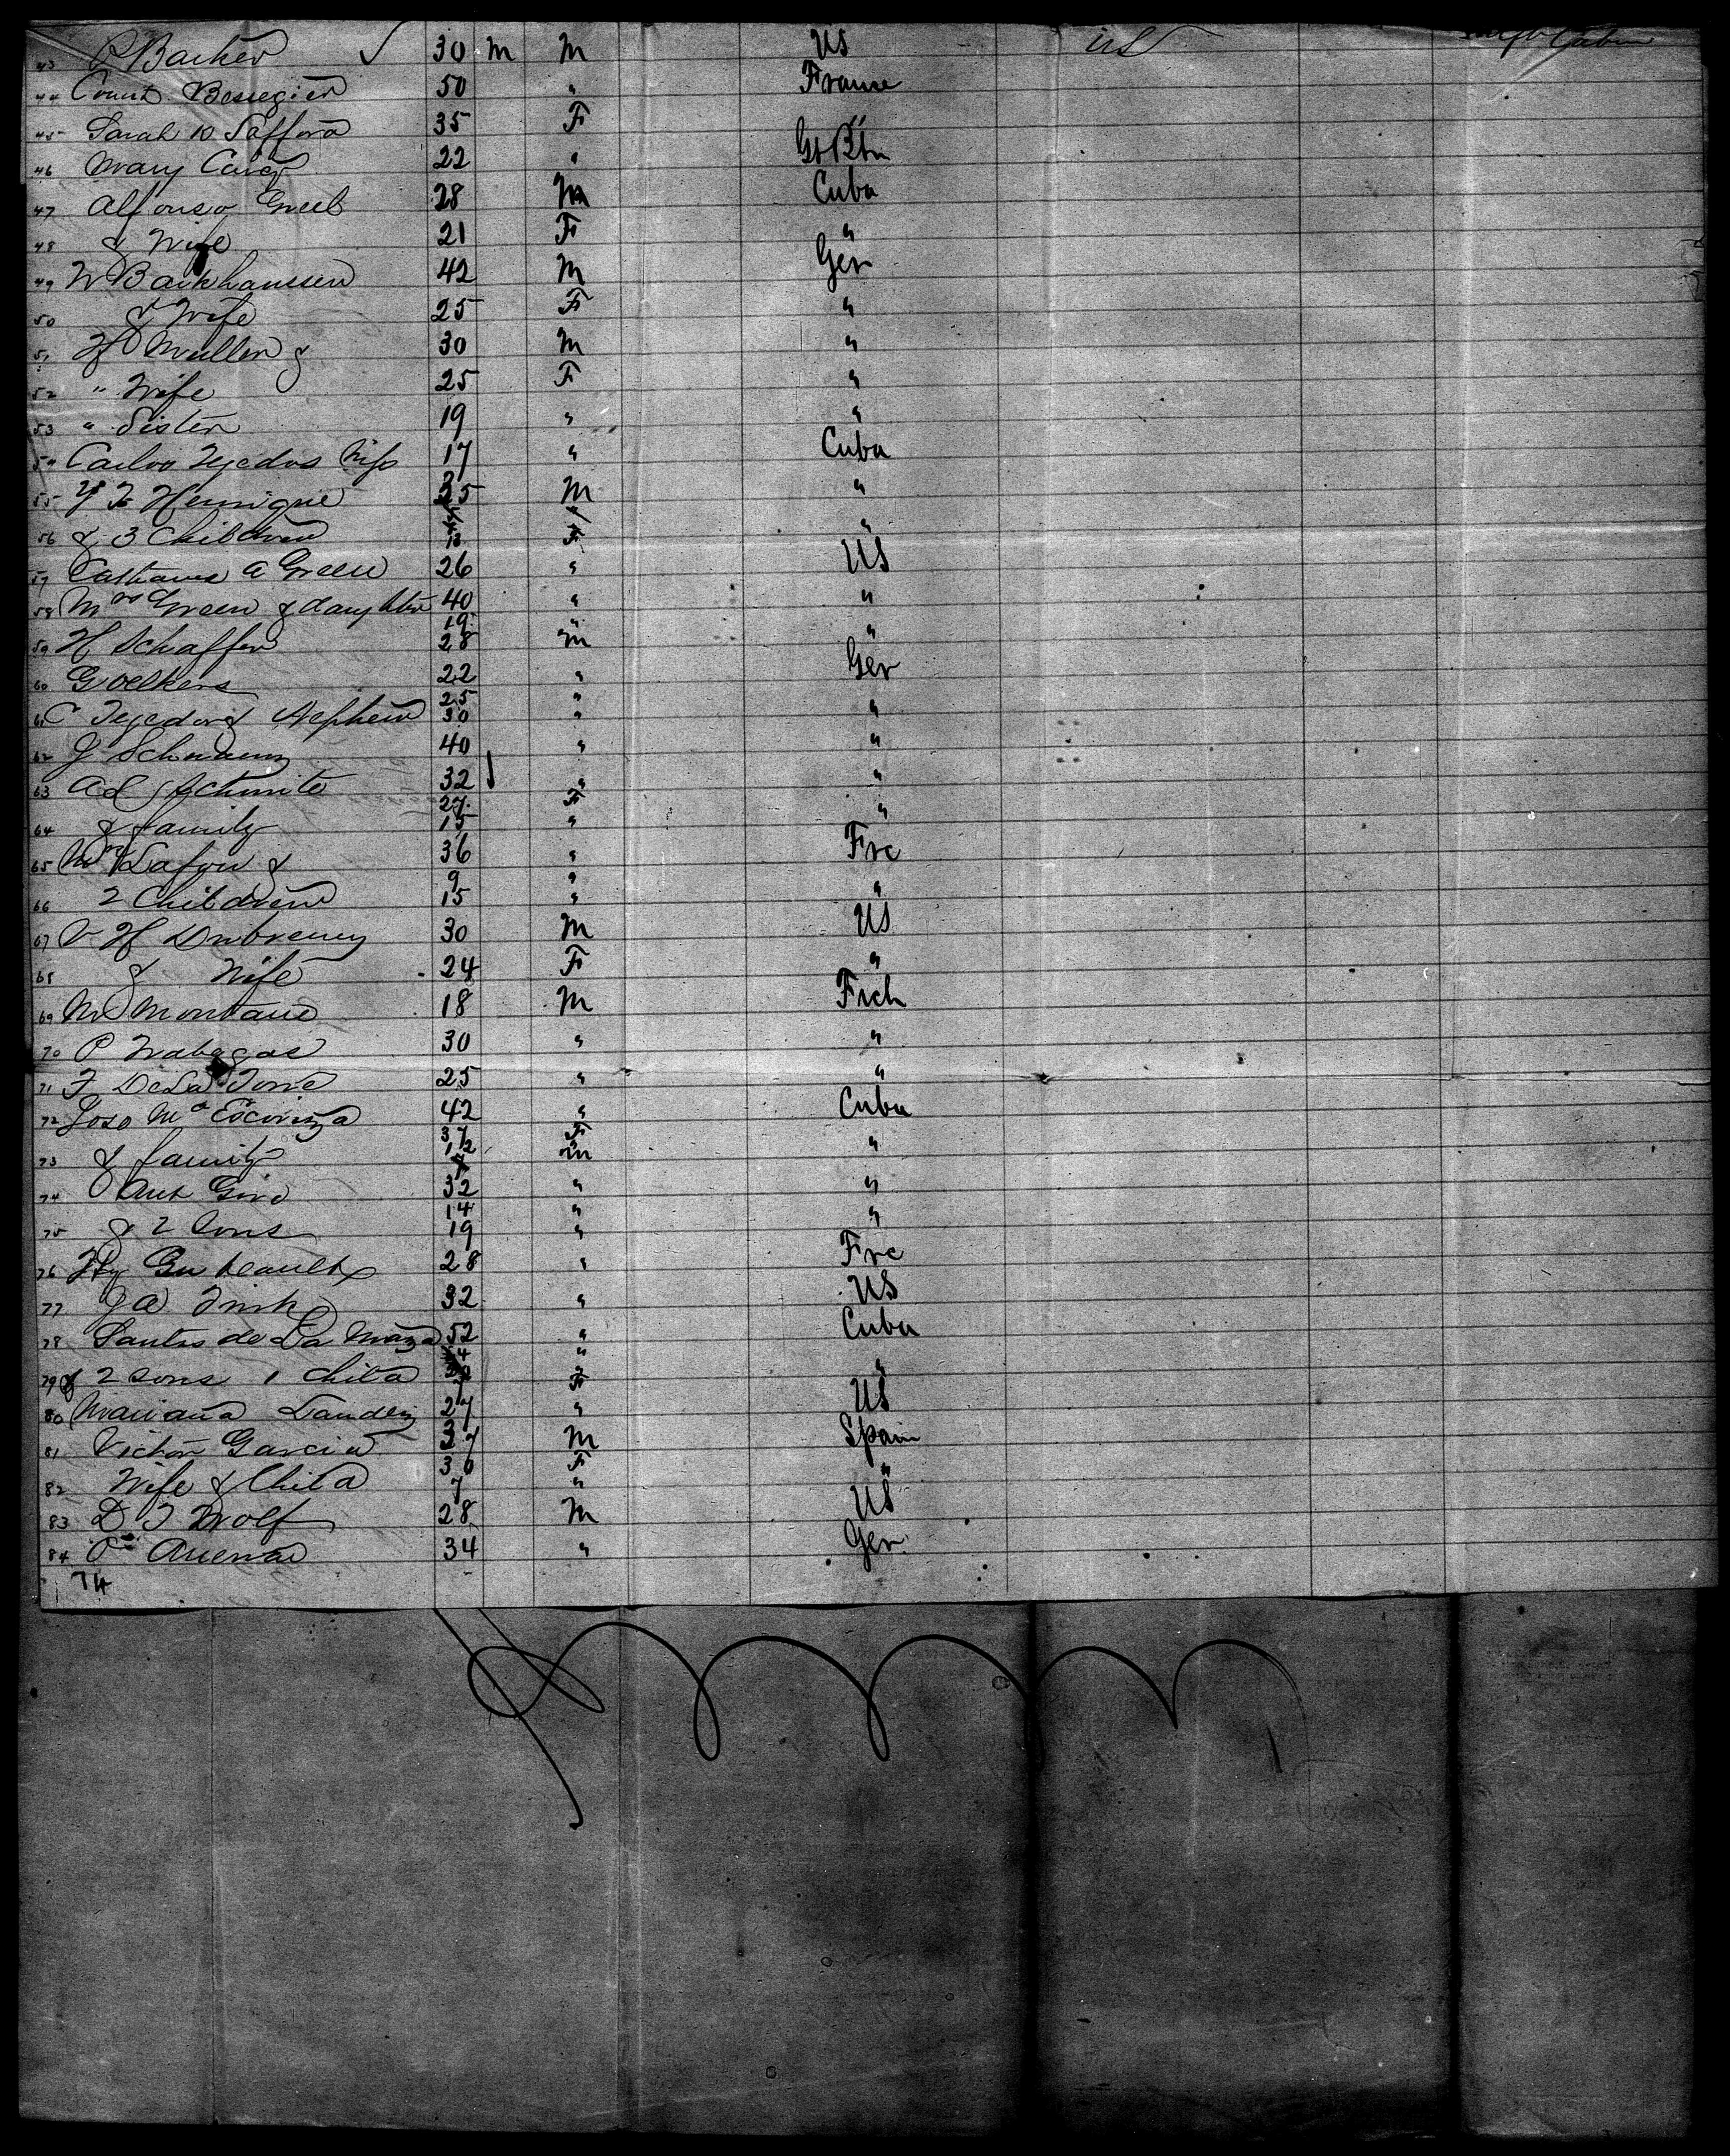 43 P Barker ✓ 30 m M US US Cabin
44 Count Bessegier 50 " France
45 Sarah D Safford 35 F "
46 Mary Carey 22 " Gt Btn
47 Alfonso Greeb 28 M Cuba
48 & Wife 21 F "
49 W Backhaussen 42 M Ger
50 & Wife 25 F "
51 H Muller & 30 M "
52 " Wife 25 F "
53 " Sister 19 " "
54 Carlos Tejedor Wife 17 " Cuba
55 Y F Henrique 35 M "
56 & 3 Children 13 F "
57 Catharine A Green 26 " US
58 Mrs Green & daughter 40 " "
19 " "
59 H Schaffer 28 m
60 G Oelkers 22 " Ger
25 "
61 C Tejedor & Nephew 30 " "
62 J Schwann 40 " "
63 Ad Schmite 32 " "
27 F
64 & family 15 " "
65 Mrs Lafon & 36 " Frc
9 "
66 2 Children 15 " "
67 V H Dubreuy 30 M US
68 & Wife 24 F "
69 M Montane 18 M Frch
70 P Trabagas 30 " "
71 F De La Torre 25 " "
72 Jose Ma Escoriza 42 " Cuba
37 F
73 & family 12 m "
74 Ant Giro 32 " "
14 " "
75 & 2 Sons 19 "
76 Hy Guteault 28 " Frc
77 J A Fish 32 " US
78 Santos de La Maza 52 " Cuba
"
79 & 2 sons 1 Child F "
80 Mariana Landez 27 " US
81 Victor Garcia 37 M Spain
30 F
82 Wife & Child 7 " "
83 D T Wolf 28 M US
84 34 " Ger
74